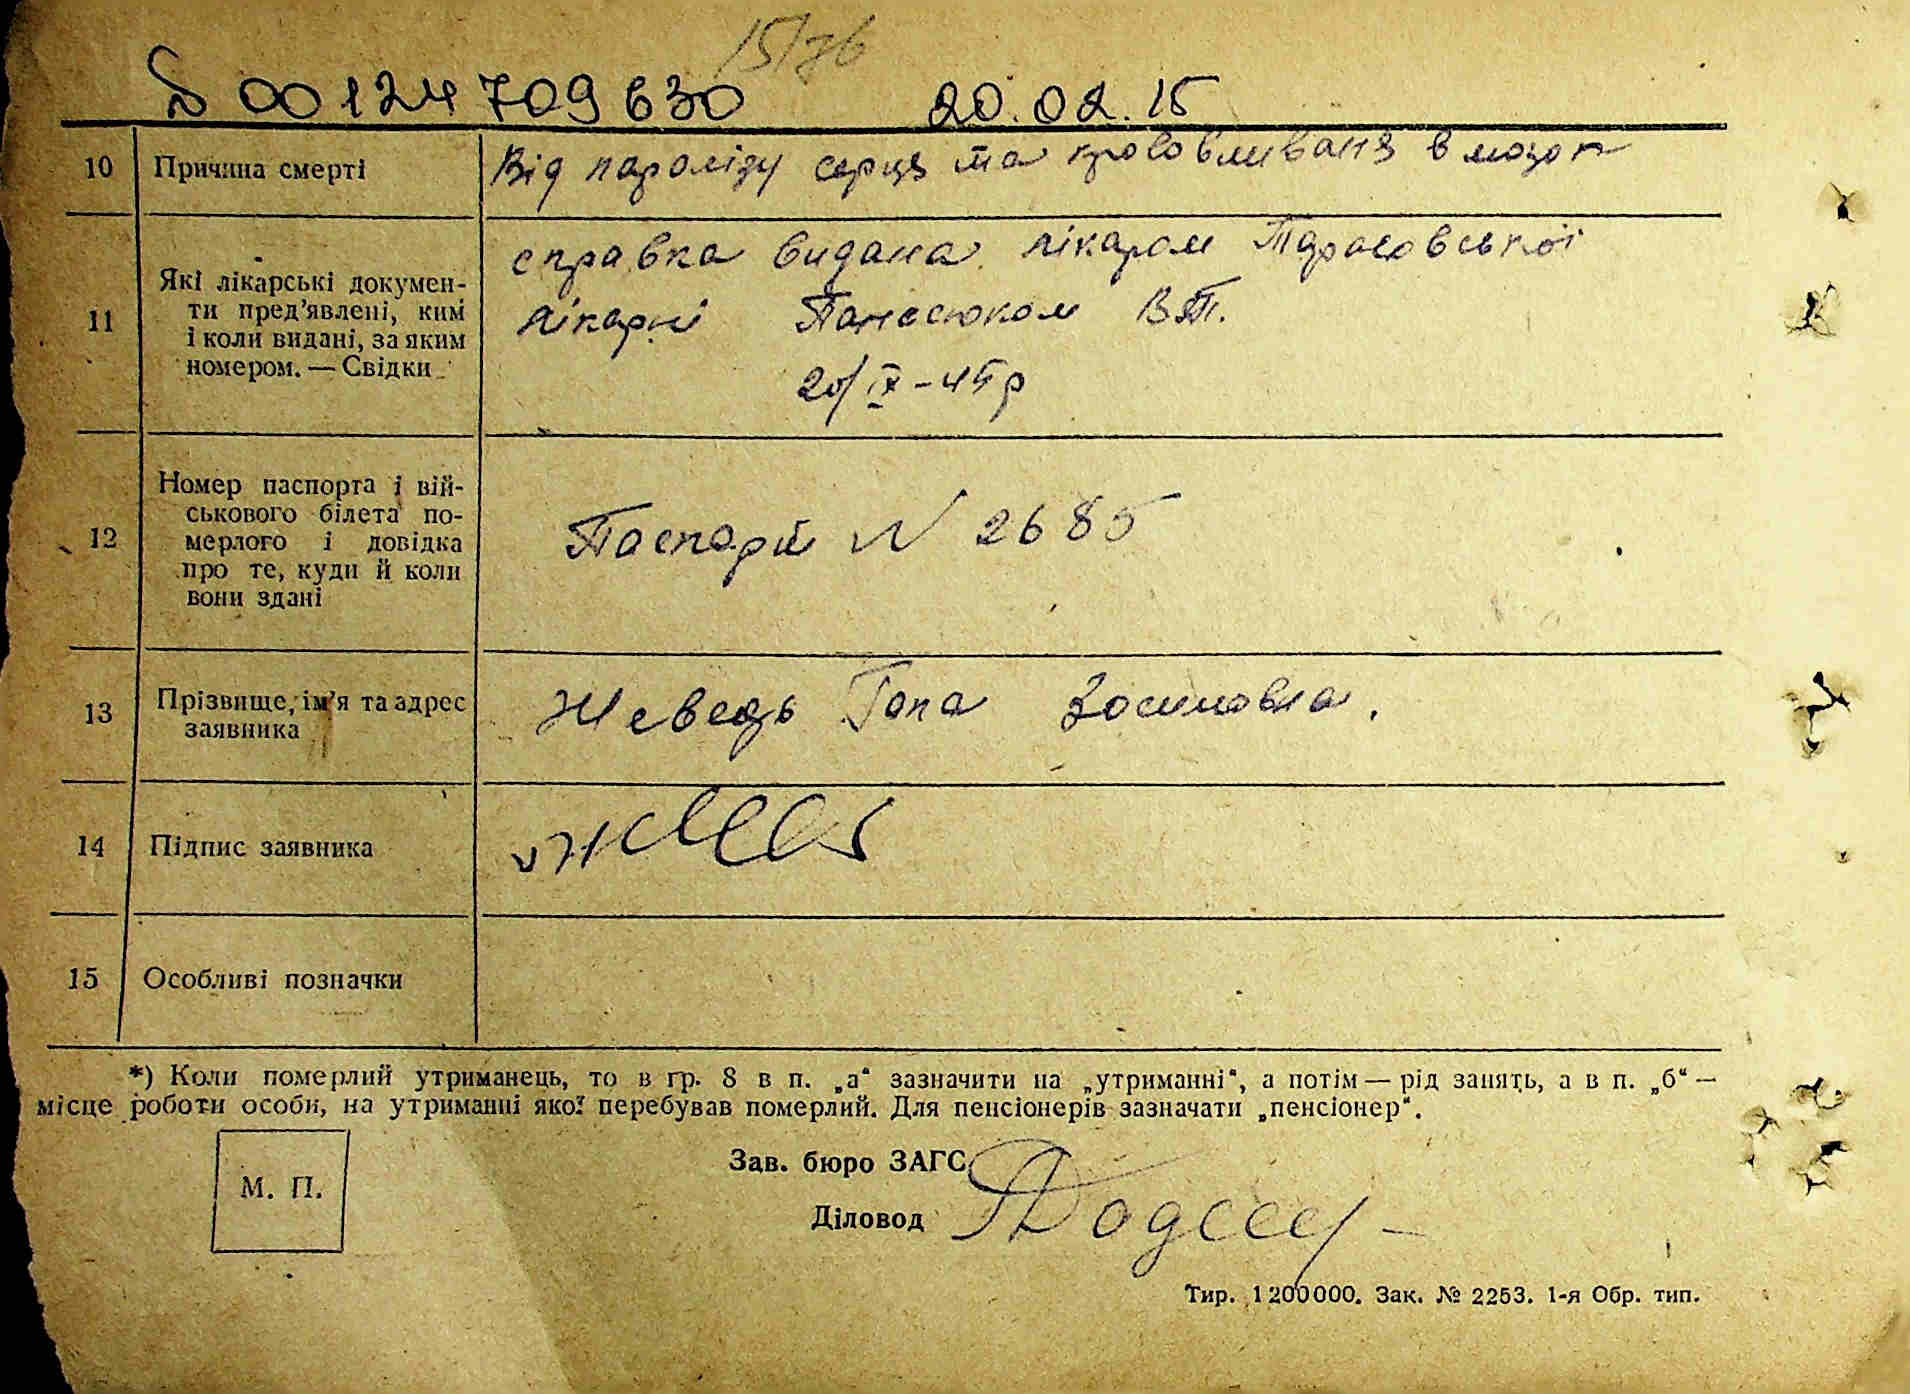 15/76
00124709630 20.02.15
10 Причина смерті Від паролізу серця та крововливаня в мозок
11 Які лікарські докумен-
ти пред’явлені, ким
і коли видані, за яким
номером. — Свідки
справка видана лікаром Тарасовської
лікарні Панасюком В.П.
20/IX-45р
12 Номер паспорта і вій-
ськового білета по-
мерлого і довідка
про те, куди й коли
вони здані
Паспорт N 2685
13 Прізвище, ім’я та адрес
заявника
Жевець Гапа Зосимовна.
14 Підпис заявника
15 Особливі позначки
*) Коли померлий утриманець, то в гр. 8 в п. „а“ зазначити на „утриманні“, а потім — рід занять, а в п. „б“ —
місце роботи особи, на утриманні якої перебував померлий. Для пенсіонерів зазначати „пенсіонер“.
М. П.
Зав. бюро ЗАГС
Діловод
Тир. 1200000. Зак. № 2253. 1-я Обр. тип.